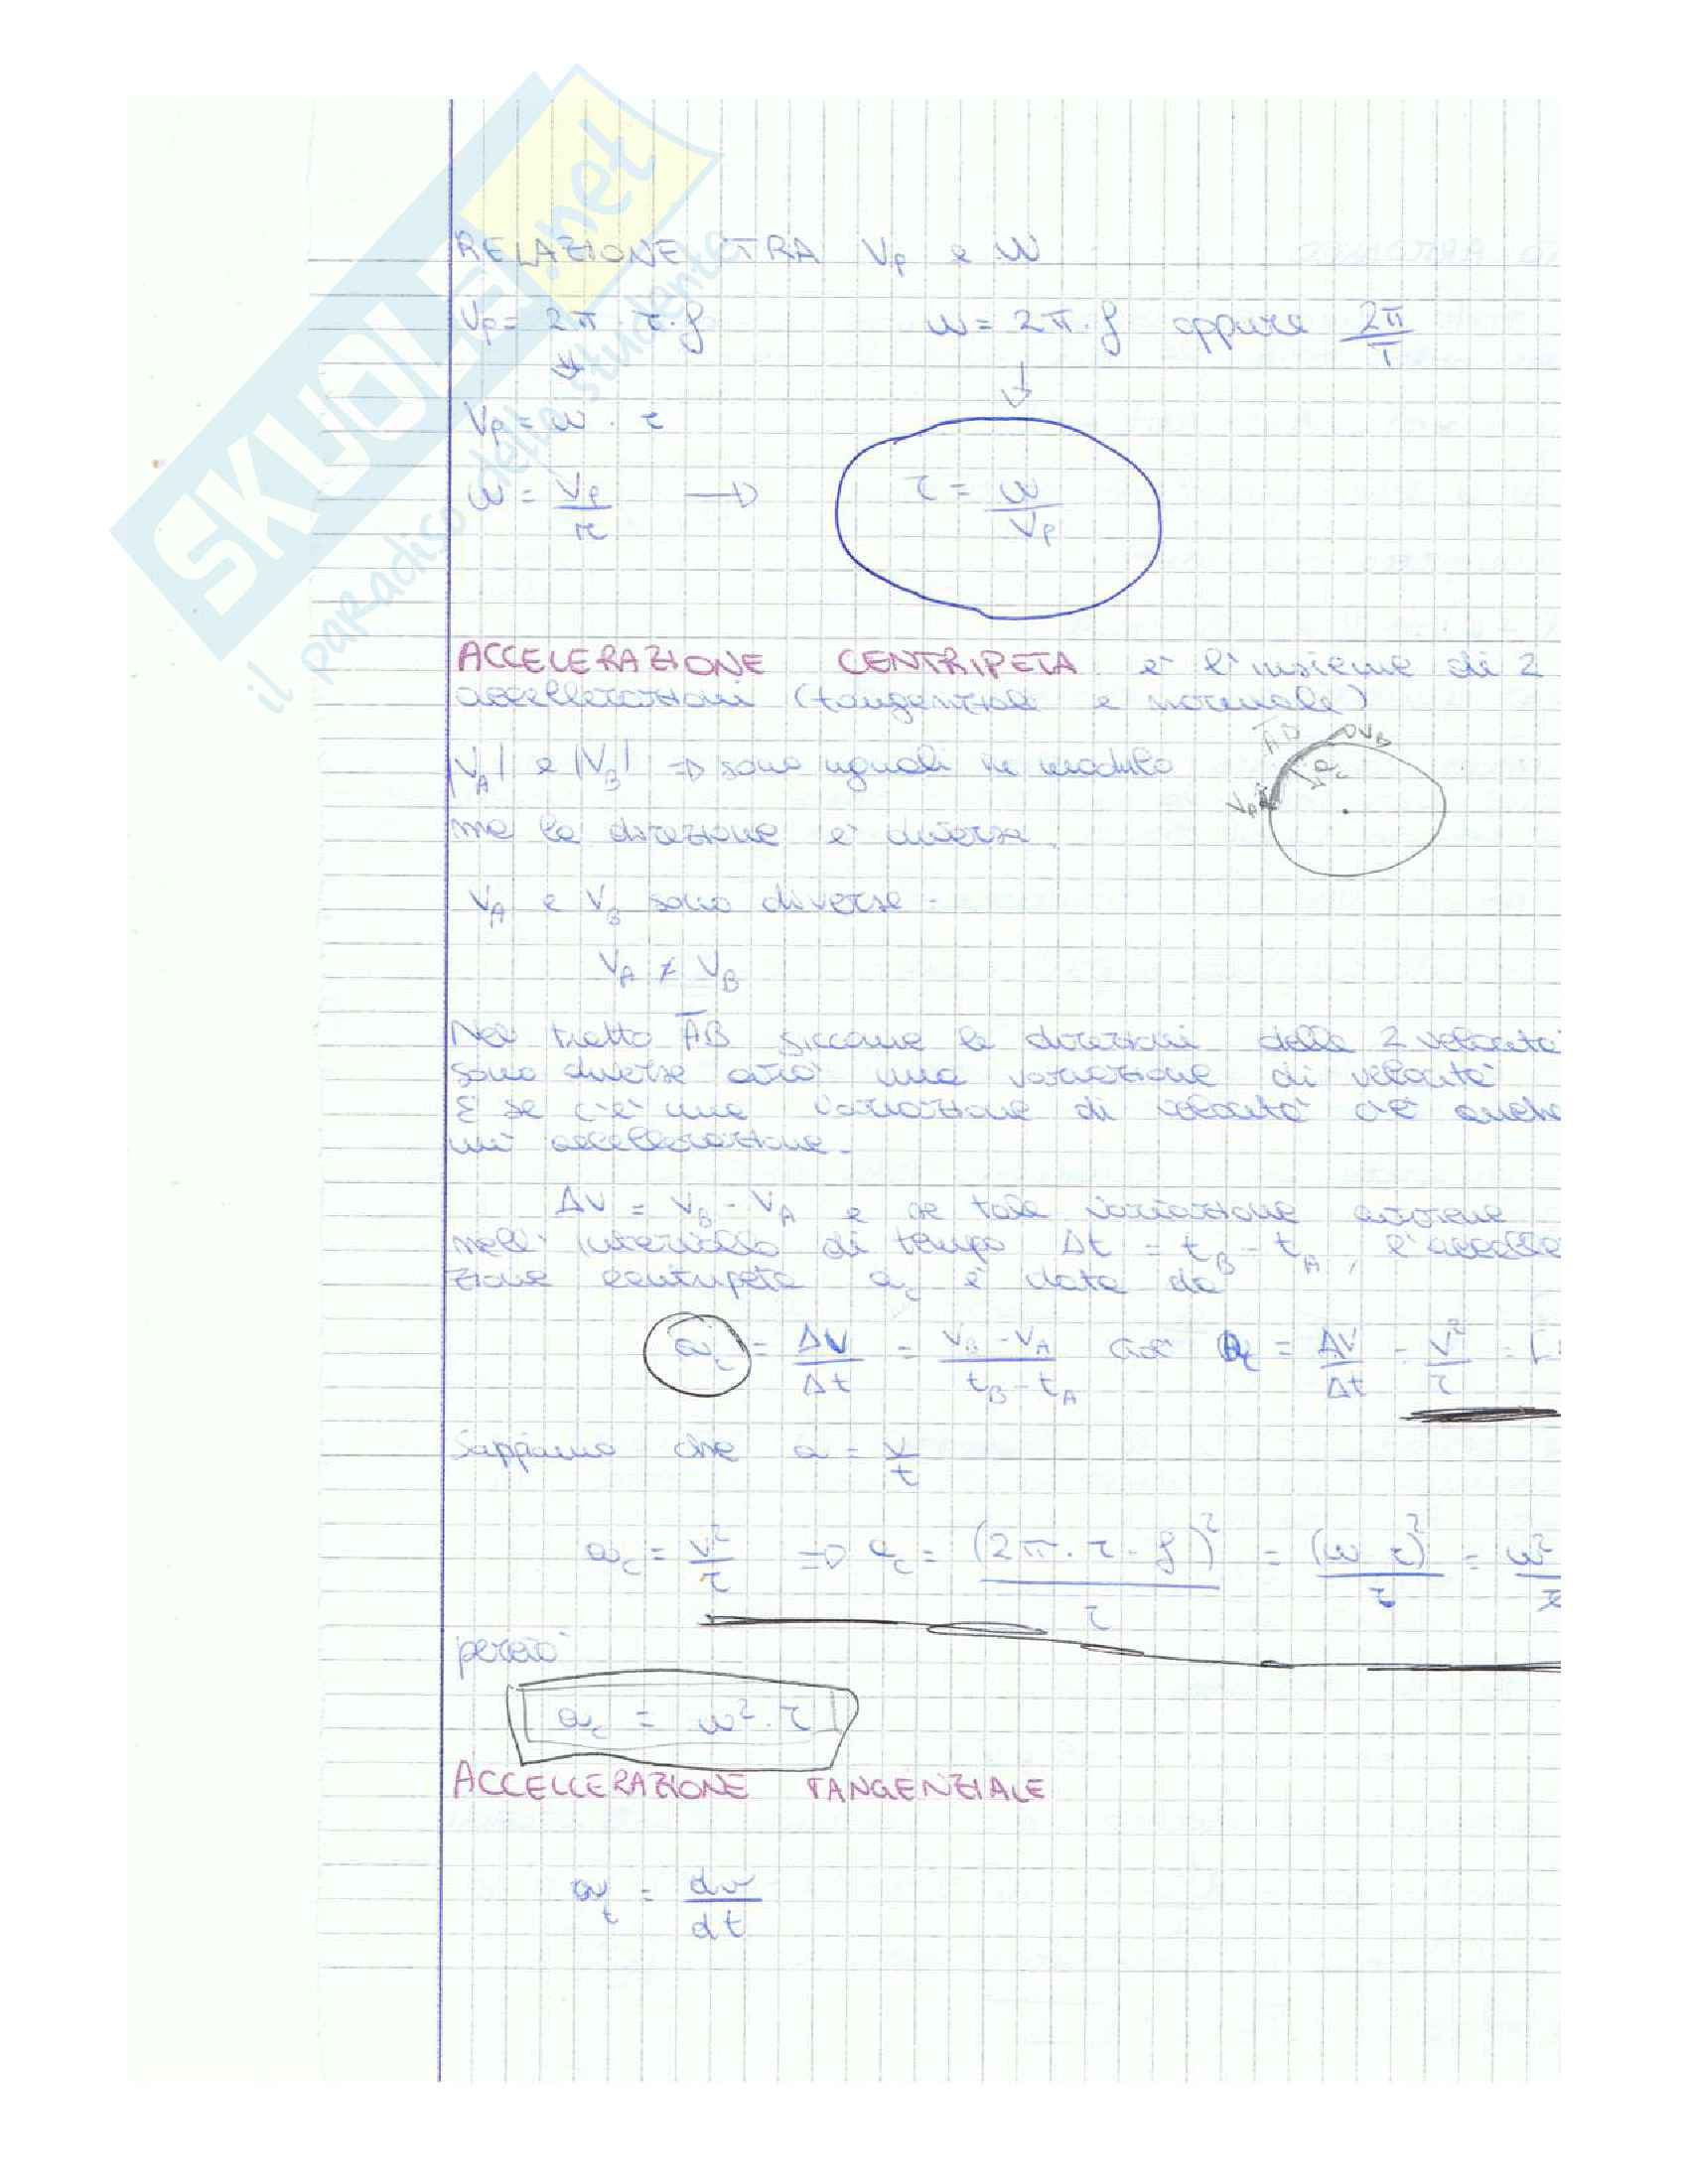 SKUOLA.net
il paradiso dello studente
RELAZIONE TRA Vp e ω
Vp = 2π · r · f ω = 2π · f oppure 2π/T
↓ ↓
Vp = ω · r
ω = Vp/r → r = ω/Vp
ACCELERAZIONE CENTRIPETA è l'insieme di 2
accellerazioni (tangenziale e normale)
|VA| e |VB| ⇒ sono uguali in modulo
ma la direzione è diversa.
AB VB
ac
VA
VA e VB sono diverse.
VA ≠ VB
Nel tratto AB siccome le direzioni delle 2 velocità
sono diverse una variazione di velocità
E se c'è una variazione di velocità c'è anche
un' accellerazione.
Δv = VB - VA e se tale variazione avviene
nell'intervallo di tempo Δt = tB - tA, l'accelle
zione centripeta ac è data da
ac = Δv/Δt = (VB - VA)/(tB - tA) cioè ac = Δv/Δt = v²/r =
Sappiamo che a = v/t
ac = v²/r ⇒ ac = (2π · r · f)²/r = (ω r)²/r = ω²
perciò
ac = ω² · r
ACCELLERAZIONE TANGENZIALE
at = dv/dt